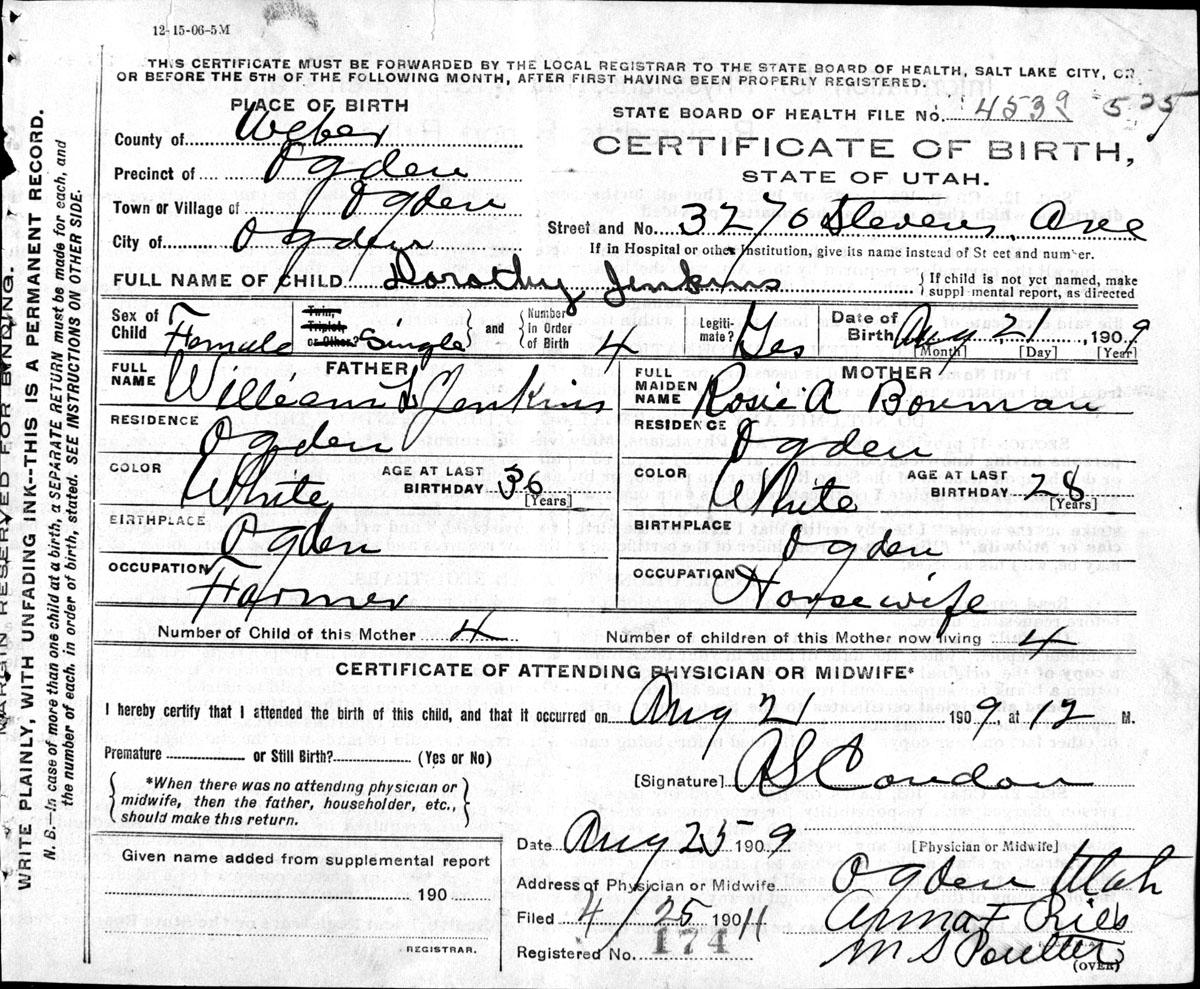 12-15-06-5M
THIS CERTIFICATE MUST BE FORWARDED BY THE LOCAL REGISTRAR TO THE STATE BOARD OF HEALTH, SALT LAKE CITY, ON
OR BEFORE THE 5TH OF THE FOLLOWING MONTH, AFTER FIRST HAVING BEEN PROPERLY REGISTERED.
PLACE OF BIRTH
County of Weber
Precinct of Ogden
Town or Village of Ogden
City of Ogden
STATE BOARD OF HEALTH FILE No. 4539 525
CERTIFICATE OF BIRTH,
STATE OF UTAH.
Street and No. 3270 Stevens Ave
If in Hospital or other Institution, give its name instead of Street and number.
FULL NAME OF CHILD Dorothy Jenkins
If child is not yet named, make
supplemental report, as directed
Sex of Child Female
Twin, Triplet, or Other? Single
and Number in Order of Birth 4
Legitimate? Yes
Date of Birth Aug. 21, 1909
[Month] [Day] [Year]
FATHER
FULL NAME William L Jenkins
RESIDENCE Ogden
COLOR White
AGE AT LAST BIRTHDAY 36
[Years]
BIRTHPLACE Ogden
OCCUPATION Farmer
MOTHER
FULL MAIDEN NAME Rosie A Bowman
RESIDENCE Ogden
COLOR White
AGE AT LAST BIRTHDAY 28
[Years]
BIRTHPLACE Ogden
OCCUPATION Housewife
Number of Child of this Mother 4
Number of children of this Mother now living 4
CERTIFICATE OF ATTENDING PHYSICIAN OR MIDWIFE*
I hereby certify that I attended the birth of this child, and that it occurred on Aug 21 1909, at 12 M.
Premature or Still Birth? (Yes or No)
*When there was no attending physician or
midwife, then the father, householder, etc.,
should make this return.
[Signature] AS Condon
[Physician or Midwife]
Given name added from supplemental report
190
REGISTRAR.
Date Aug 25 1909
Address of Physician or Midwife Ogden Utah
Filed 4/25 1911
Registered No. 174
M S Poulter
(OVER)
MARGIN RESERVED FOR BINDING.
WRITE PLAINLY, WITH UNFADING INK--THIS IS A PERMANENT RECORD.
N. B.--In case of more than one child at a birth, a SEPARATE RETURN must be made for each, and
the number of each, in order of birth, stated. SEE INSTRUCTIONS ON OTHER SIDE.